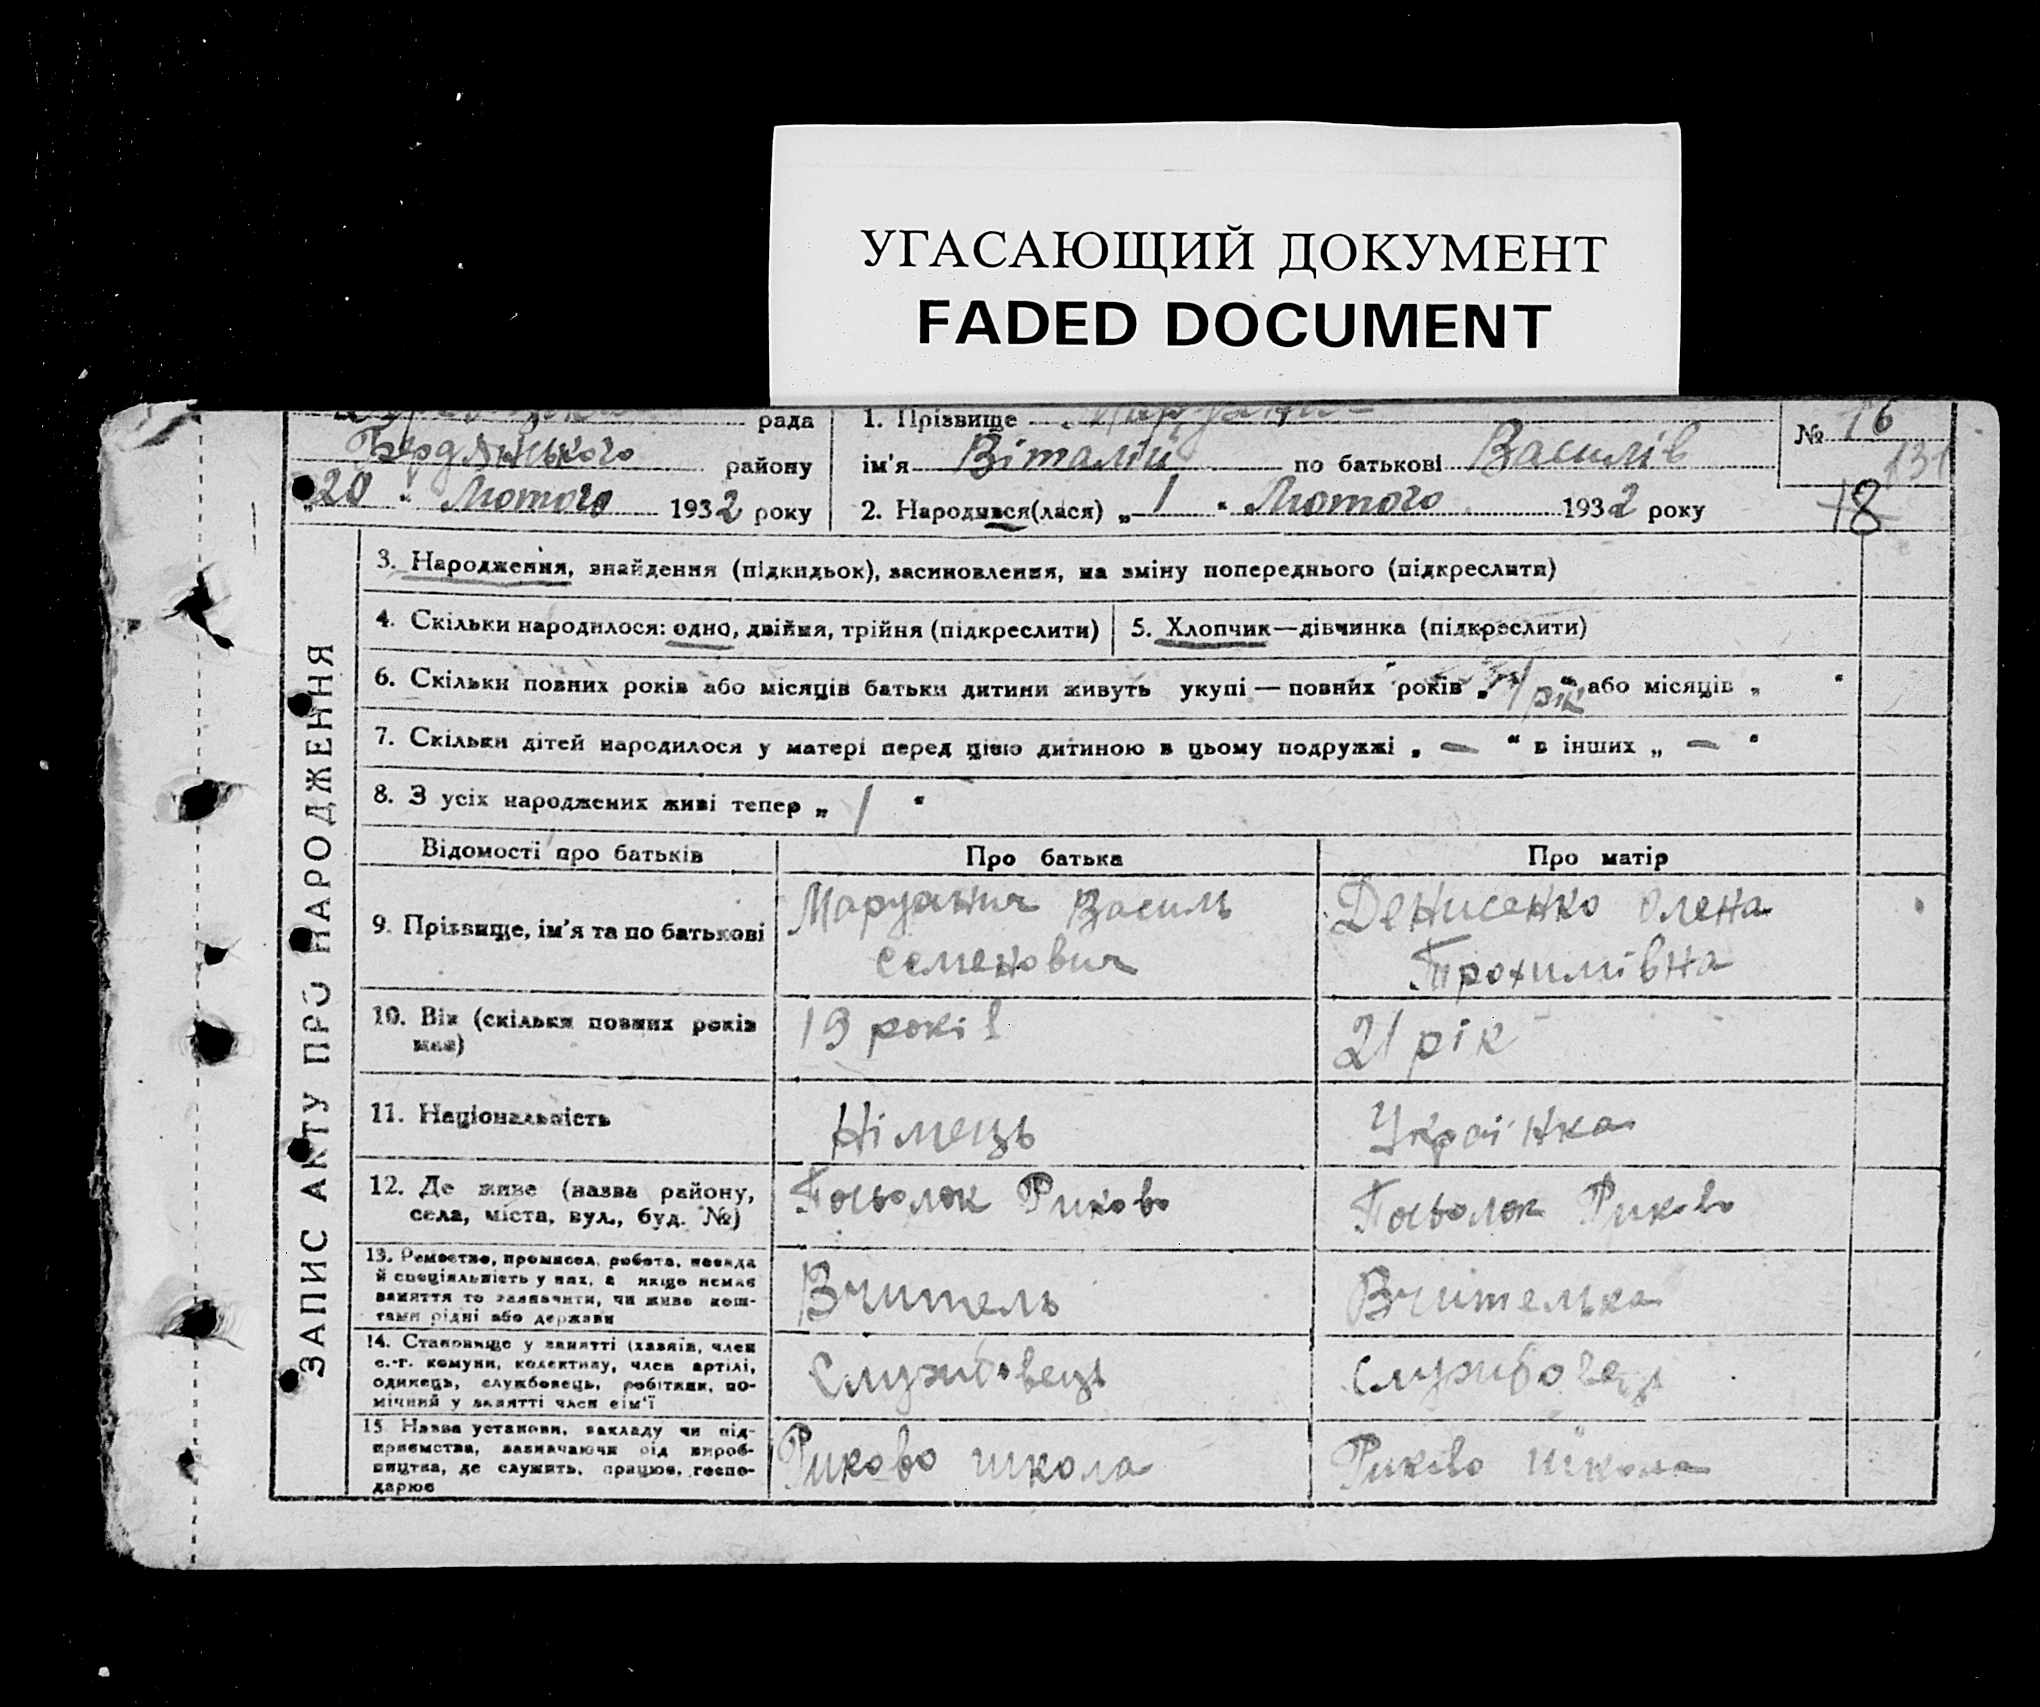 УГАСАЮЩИЙ ДОКУМЕНТ
FADED DOCUMENT
рада
1. Прізвище
№ 16
Бердянського району
ім'я Віталий по батькові Василів
131
„20“ Лютого 1932 року
2. Народився(лася) „1“ Лютого 1932 року
18
ЗАПИС АКТУ ПРО НАРОДЖЕННЯ
3. Народження, знайдення (підкидьок), засиновлення, на зміну попереднього (підкреслити)
4. Скільки народилося: одно, двійня, трійня (підкреслити)
5. Хлопчик—дівчинка (підкреслити)
6. Скільки повних років або місяців батьки дитини живуть укупі — повних років „1 рік“ або місяців „ “
7. Скільки дітей народилося у матері перед цією дитиною в цьому подружжі „ — “ в інших „ — “
8. З усіх народжених живі тепер „ 1 “
Відомості про батьків
Про батька
Про матір
9. Прізвище, ім'я та по батькові
Маруанич Василь
семенович
Денисенко Олена
Трохимівна
10. Вік (скільки повних років
має)
19 років
21 рік
11. Національність
Німець
Українка
12. Де живе (назва району,
села, міста, вул., буд. №)
Посьолок Риково
Посьолок Риково
13. Ремество, промисел, робота, посада
й спеціяльність у них, а якщо немає
заняття то зазначити, чи живе кош-
тами рідні або держави
Вчитель
Вчителька
14. Становище у занятті (хазяїн, член
с.-г. комуни, колективу, член артілі,
одинець, службовець, робітник, по-
мічний у занятті член сім'ї
Службовець
Службовець
15. Назва установи, закладу чи під-
приємства, зазначаючи рід вироб-
ництва, де служить, працює, госпо-
дарює
Риково школа
Риково школа